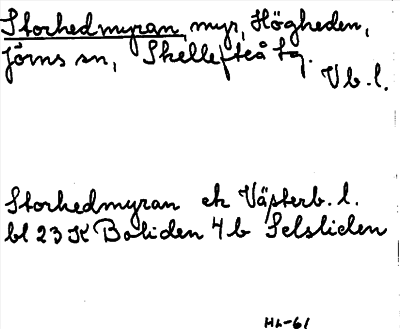 Storhedmyran, myr, Högheden,
Jörns sn, Skellefteå tg.
Vb. l.
Storhedmyran ek Västerb. l.
bl 23 K Boliden 4 b Selsliden
HL-61